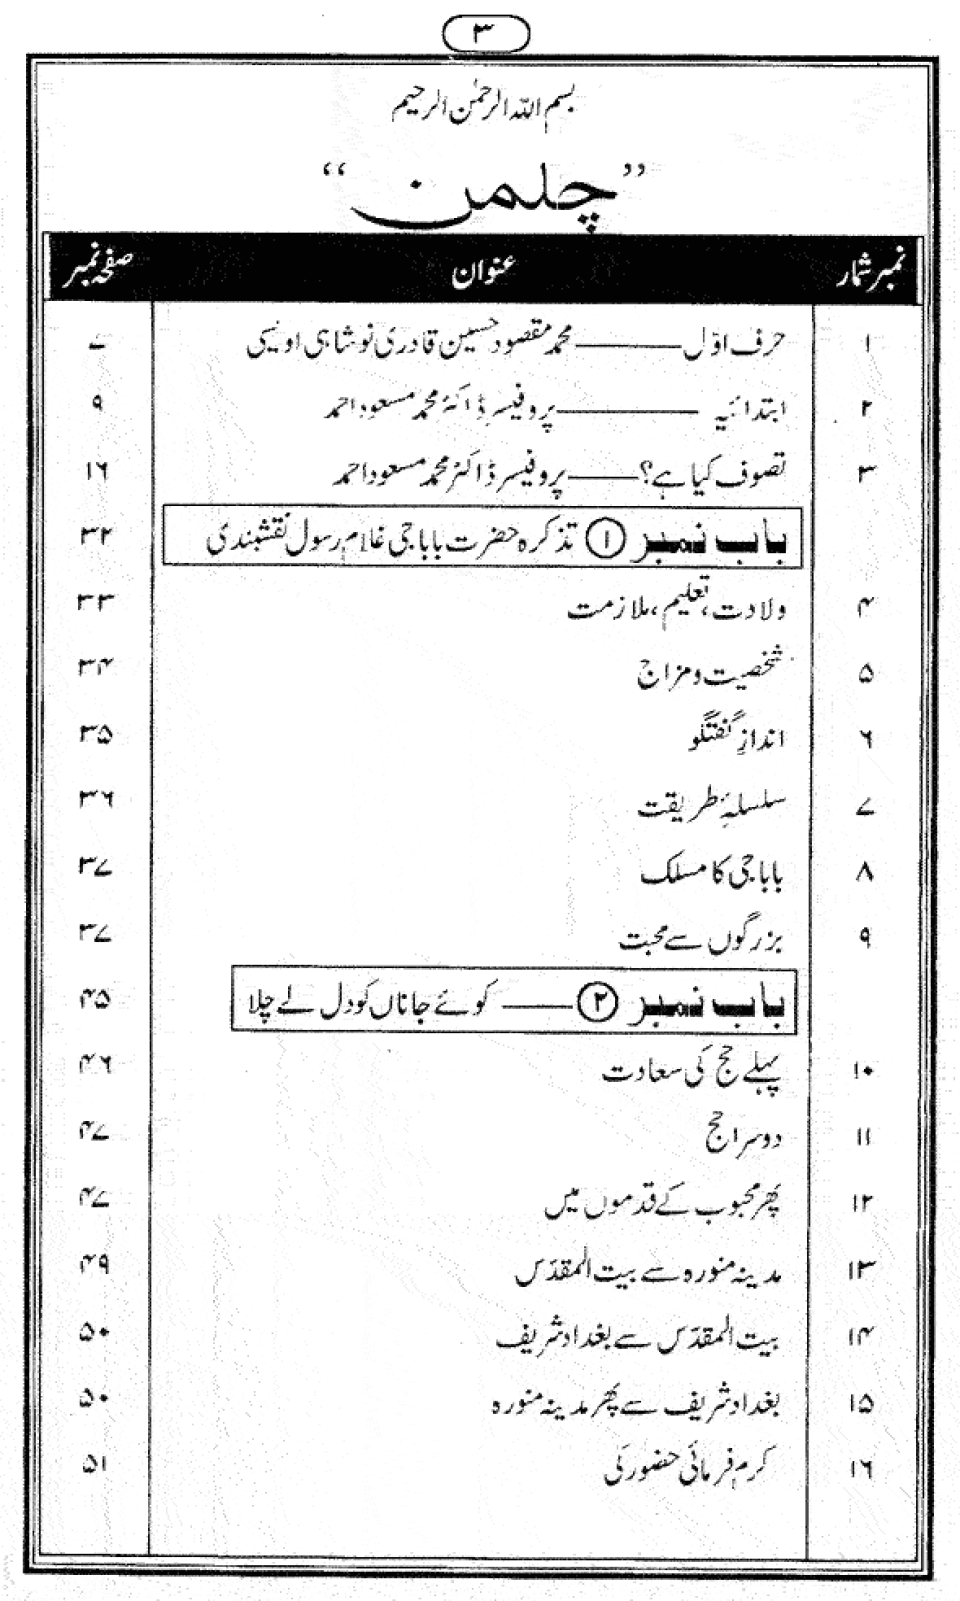 ۳
بسم اللہ الرحمٰن الرحیم
”چلمن“
نمبر شمار عنوان صفحہ نمبر
۱ حرف اوّل ——— محمد مقصود حسین قادری نوشاہی اویسی ۷
۲ ابتدائیہ ——— پروفیسر ڈاکٹر محمد مسعود احمد ۹
۳ تصوف کیا ہے؟ —— پروفیسر ڈاکٹر محمد مسعود احمد ۱۶
باب نمبر ۱ تذکرہ حضرت باباجی غلام رسول نقشبندی ۳۲
۴ ولادت، تعلیم، ملازمت ۳۳
۵ شخصیت و مزاج ۳۴
۶ اندازِ گفتگو ۳۵
۷ سلسلۂ طریقت ۳۶
۸ باباجی کا مسلک ۳۷
۹ بزرگوں سے محبت ۳۷
باب نمبر ۲ —— کوئے جاناں کو دل لے چلا ۴۵
۱۰ پہلے حج کی سعادت ۴۶
۱۱ دوسرا حج ۴۷
۱۲ پھر محبوب کے قدموں میں ۴۷
۱۳ مدینہ منورہ سے بیت المقدّس ۴۹
۱۴ بیت المقدّس سے بغداد شریف ۵۰
۱۵ بغداد شریف سے پھر مدینہ منورہ ۵۰
۱۶ کرم فرمائی حضور کی ۵۱